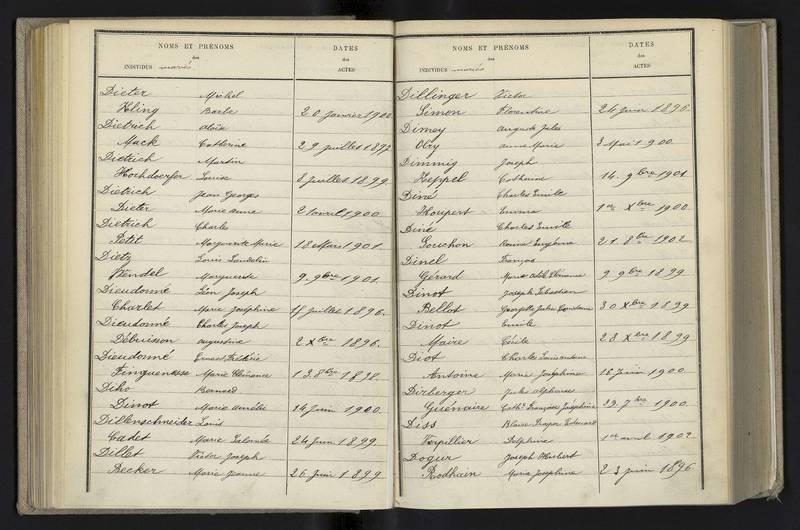 NOMS ET PRÉNOMS
des
INDIVIDUS mariés
DATES
des
ACTES
Dieter Michel
Kling Barbe 20 Janvier 1900
Dietrich Aloïse
Mack Catherine 29 Juillet 1897
Dietrich Martin
Hochdoerfer Louise 8 Juillet 1899
Dietrich Jean Georges
Dieter Marie Anne 21 avril 1900
Dietrich Charles
Petit Marguerite Marie 18 Mars 1901
Dietz Louis Landelin
Wendel Marguerite 9. 9bre 1901
Dieudonné Léon Joseph
Charlet Marie Joséphine 17 Juillet 1896.
Dieudonné Charles Joseph
Débuison Augustine 2 Xbre 1896.
Dieudonné Ernest
Marie Clémence 13. 8bre 1898.
Diho Bernard
Dinot Marie Amélie 14 Juin 1900
Dillenschneider Louis
Cadet Marie 24 Juin 1899
Dillet Victor Joseph
Becker Marie Jeanne 26 Juin 1899
NOMS ET PRÉNOMS
des
INDIVIDUS mariés
DATES
des
ACTES
Dillinger Victor
Simon Florentine 24 Juin 1896
Dimey Auguste Jules
Obry Anne Marie 3 Mai 1900
Dimmig Joseph
Heppel Catherine 14. 9bre 1901
Diné Charles Emile
Houpert Emma 1er Xbre 1900
Diné Charles Emile
Souchon Eugénie 21. 8bre 1902
Dinel François
Gérard Marie Clémence 9 9bre 1899
Dinot Joseph Sébastien
Bellot Georgette Julie 30 Xbre 1899
Dinot Emile
Maire Cécile 28 Xbre 1899
Diot Charles Louis Antoine
Antoine Marie Joséphine 16 Juin 1900
Dirberger Jules Alphonse
Guénaire Cathe Françoise Joséphine 29. 7bre 1900
Diss Blaise Edouard
Verpillier Delphine 1er avril 1902
Dogur Joseph Hubert
Rodhain Marie Joséphine 23 Juin 1896